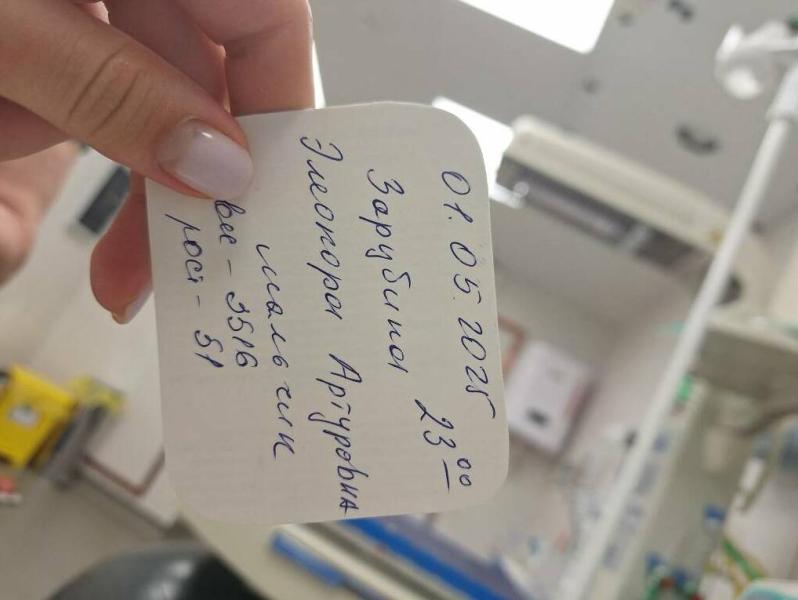 01.05.2025
23⁰⁰
Зарубина
Элеонора Артуровна
мальчик
вес - 3516
рост - 51